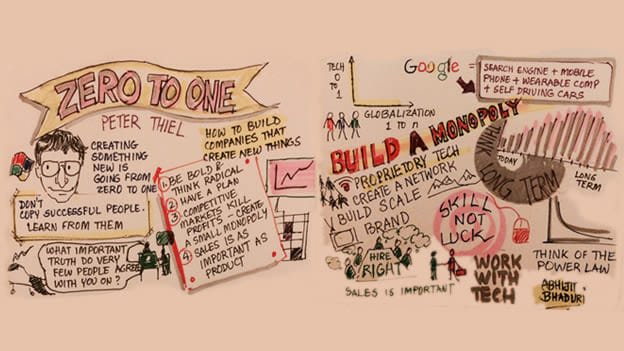 ZERO TO ONE
PETER THIEL
CREATING
SOMETHING
NEW IS
GOING FROM
ZERO TO ONE
HOW TO BUILD
COMPANIES THAT
CREATE NEW THINGS
DON'T
COPY SUCCESSFUL PEOPLE.
LEARN FROM THEM
WHAT IMPORTANT
TRUTH DO VERY
FEW PEOPLE AGREE
WITH YOU ON?
1. BE BOLD &
THINK RADICAL
2 HAVE A PLAN
3 COMPETITIVE
MARKETS KILL
PROFITS - CREATE
A SMALL MONOPOLY
4 SALES IS AS
IMPORTANT AS
PRODUCT
TECH
0
TO
1
GLOBALIZATION
1 TO n
Google =
SEARCH ENGINE + MOBILE
PHONE + WEARABLE COMP
+ SELF DRIVING CARS
BUILD A MONOPOLY
PROPRIETORY TECH
CREATE A NETWORK
BUILD SCALE
BRAND
THINK LONG TERM
TODAY
LONG
TERM
SKILL
NOT
LUCK
HIRE
RIGHT
SALES IS IMPORTANT
WORK
WITH
TECH
THINK OF THE
POWER LAW
ABHIJIT
BHADURI